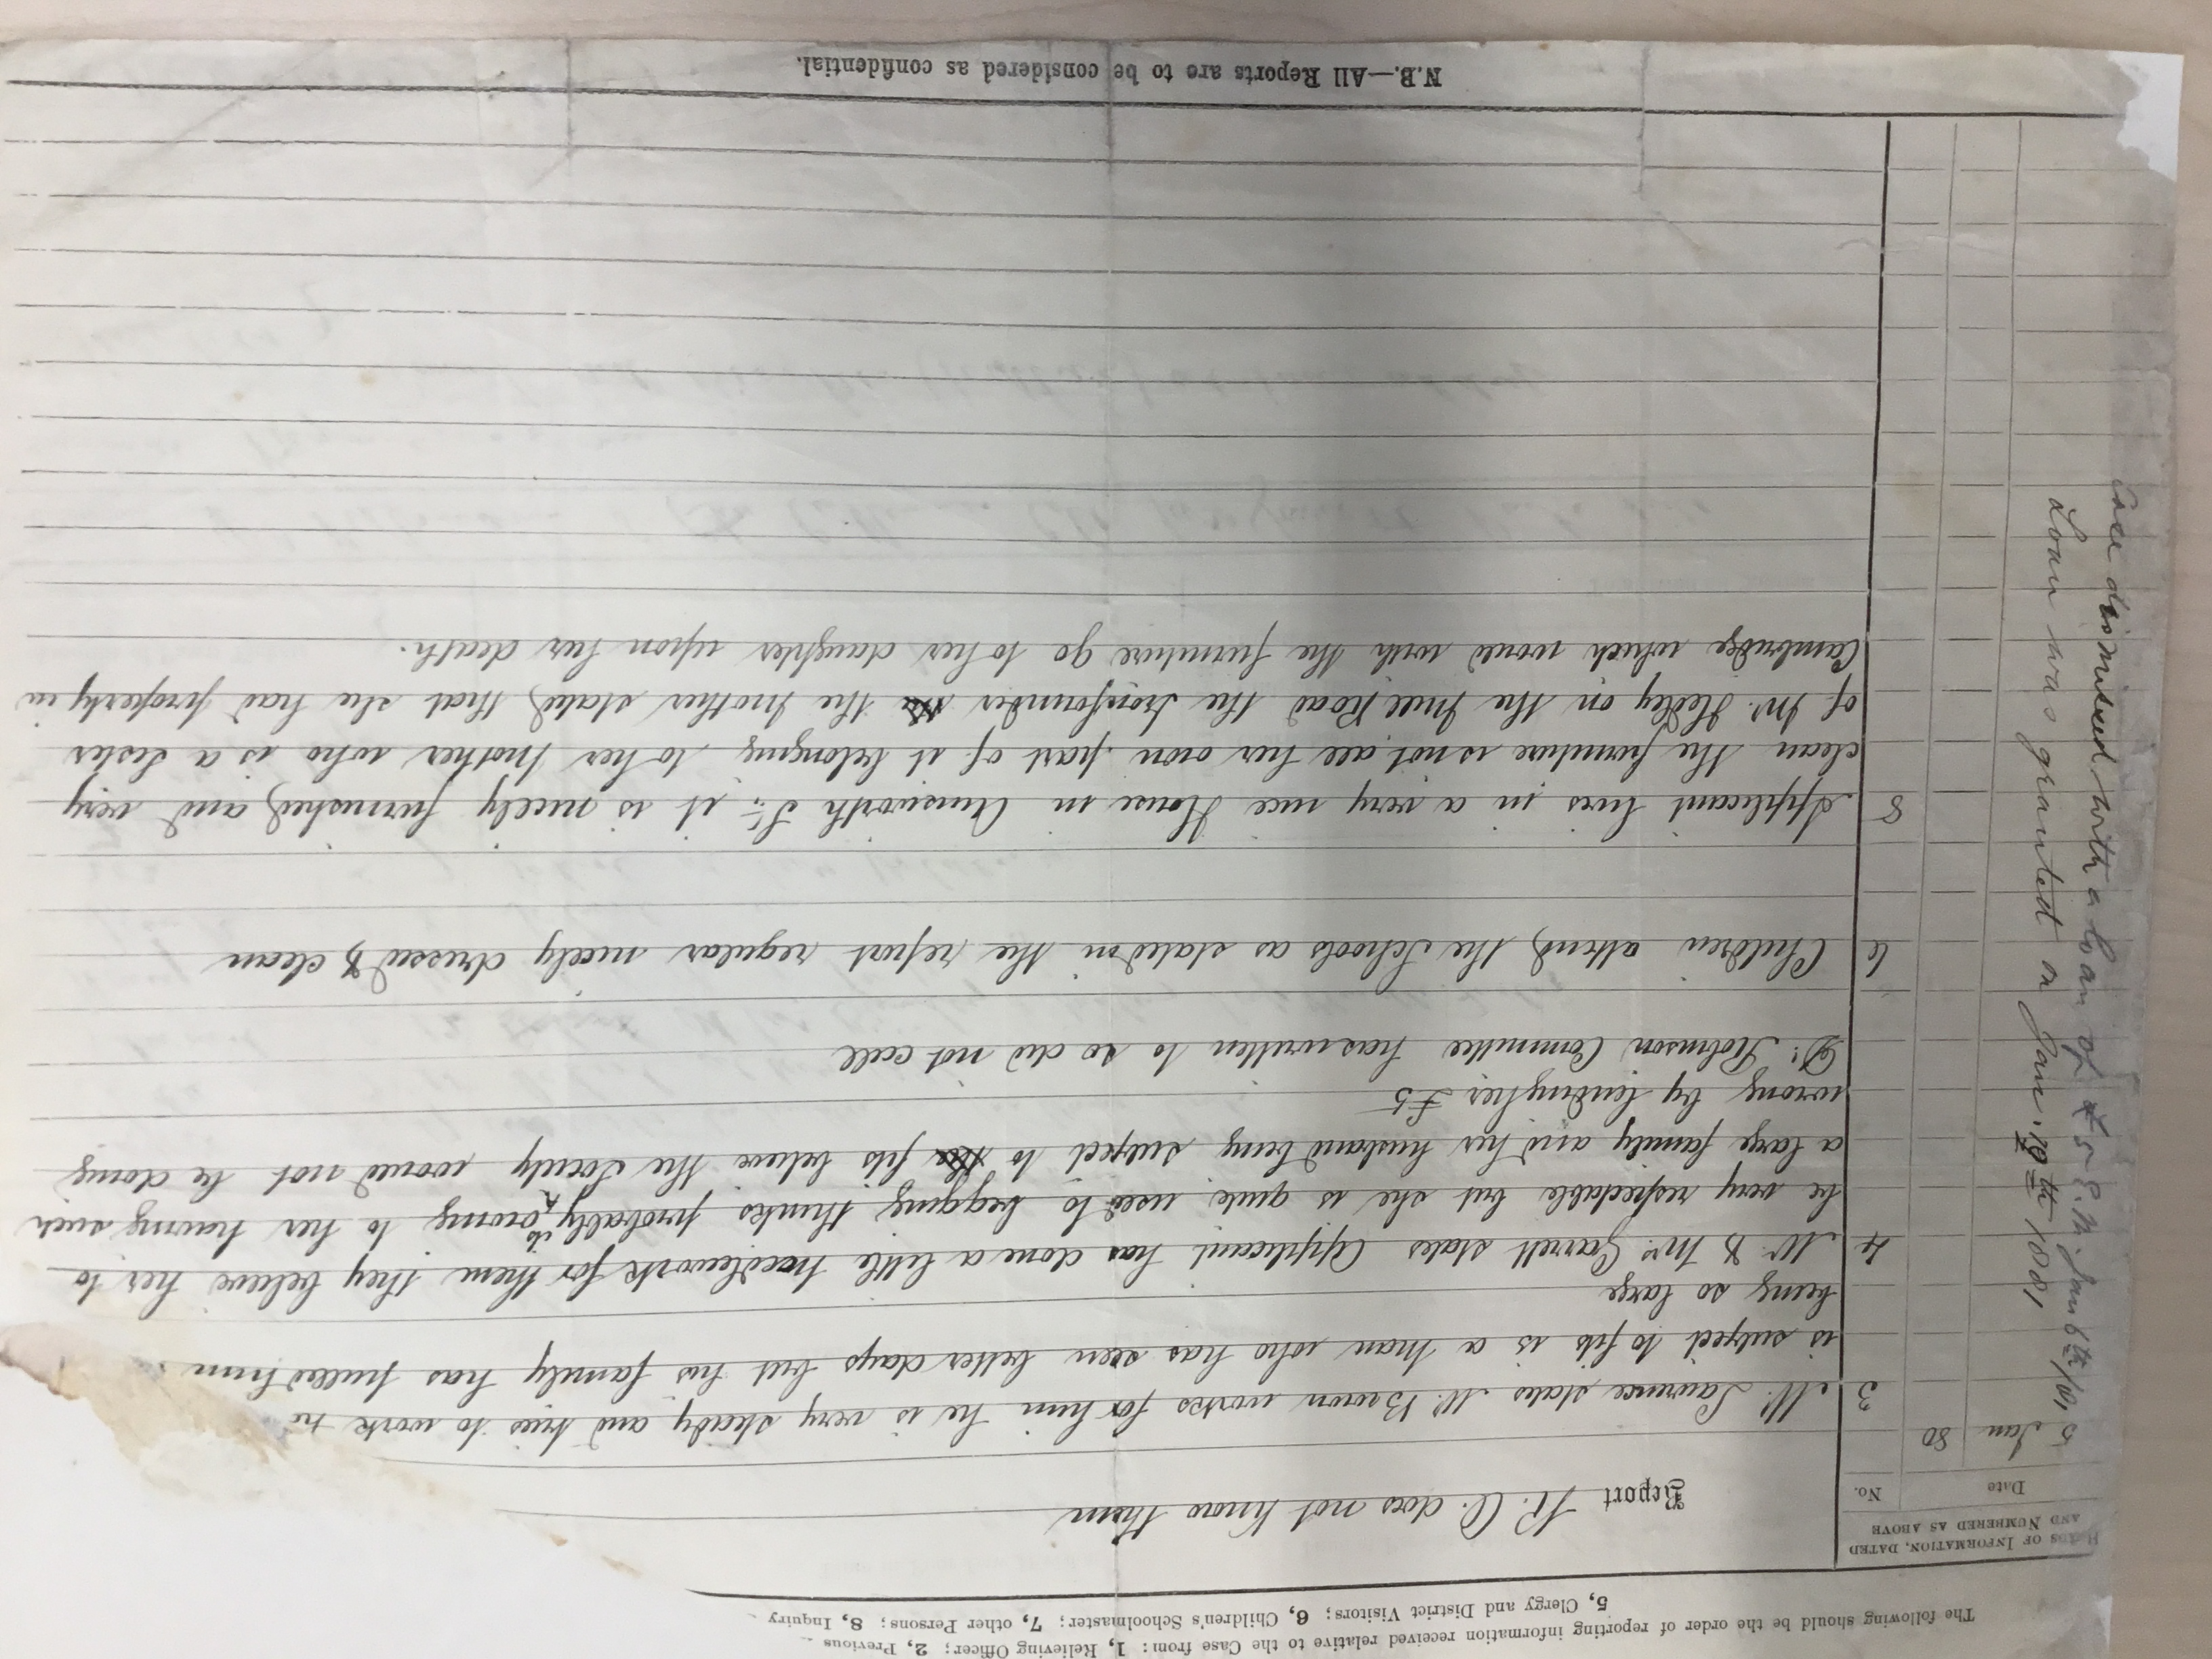 The following should be the order of reporting information received relative to the Case from: 1, Relieving Officer; 2, Previous
5, Clergy and District Visitors; 6, Children's Schoolmaster; 7, other Persons; 8, Inquiry
Heads of Information, dated
and Numbered as above
Date No.
Report R. O. does not know them
5 Jan 80
3 Mr. Lawrence states Mr. Brown works for him he is very steady and tries to work he
is subject to fits is a man who has seen better days but his family has pulled him
being so large
4 Mr. & Mrs. Garrett states Applicant has done a little needlework for them they believe her to
be very respectable but she is quite used to begging thinks probably its owing to her having such
a large family and her husband being subject to fits believe the Society would not be doing
wrong by lending her £5
Dr. Robinson Committee has written to so did not call
6 Children attend the Schools as stated in the report regular nicely dressed & clean
8 Applicant lives in a very nice House in Ainsworth St. it is nicely furnished and very
clean the furniture is not all her own part of it belonging to her Mother who is a Sister
of Mr. Hedley on the Mill Road the Ironfounder the Mother stated that she had property in
Cambridge which would with the furniture go to her daughter upon her death.
N.B.—All Reports are to be considered as confidential.
Case dismissed with a loan of £5 E.M. Jan 6th /81
Loan was granted on Jan. 10th 1881